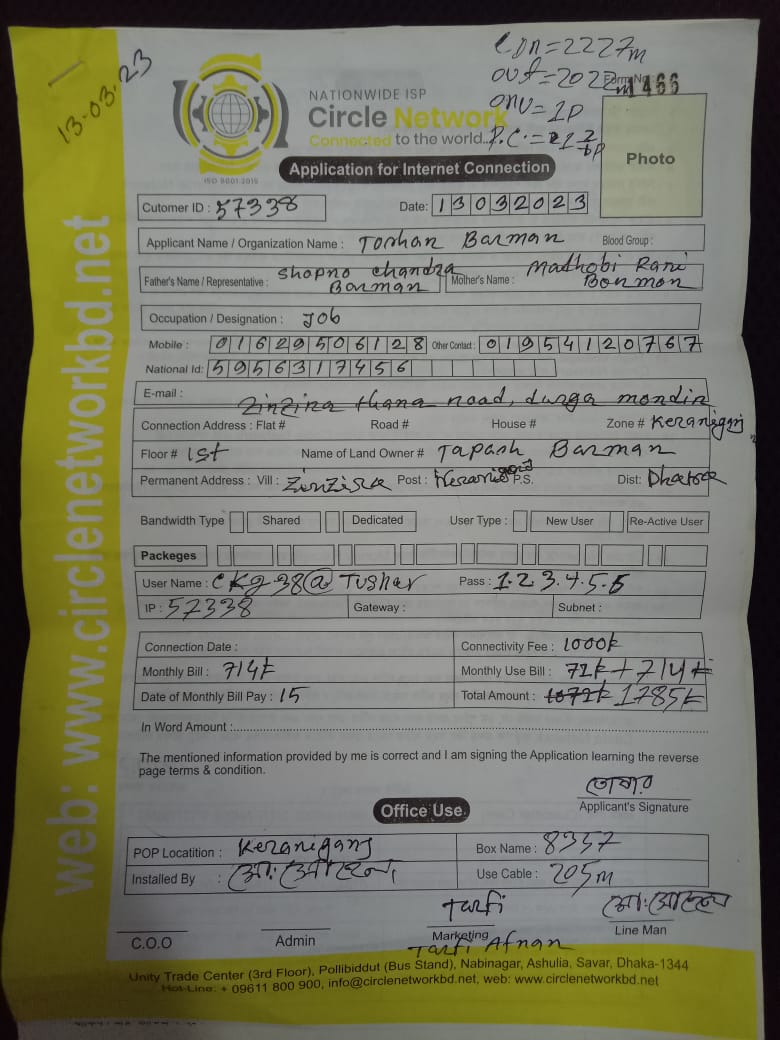 13-03-23
CDN=2227m
out=2022m
onu=1P
P.C.=
Form No: 1466
NATIONWIDE ISP
Circle Network
Connected to the world...
ISO 9001:2015
Photo
Application for Internet Connection
Cutomer ID : 57338 Date: 13032023
Applicant Name / Organization Name : Torhan Barman Blood Group :
Father's Name / Representative : Shopno Chandra Barman Mother's Name : Madhobi Rani Bormon
Occupation / Designation : Job
Mobile : 01629506128 Other Contact : 01954120767
National Id: 5956317456
E-mail :
Zinzira thana road, durga mondir
Connection Address : Flat # Road # House # Zone # Keraniganj
Floor # 1st Name of Land Owner # Tapash Barman
Permanent Address : Vill : Zinzira Post : Keraniganj P.S. Dist: Dhaka
Bandwidth Type Shared Dedicated User Type : New User Re-Active User
Packeges
User Name : CKg-38@Tushar Pass : 1.2.3.4.5.6
IP : 57338 Gateway : Subnet :
Connection Date : Connectivity Fee : 1000k
Monthly Bill : 714k Monthly Use Bill : 71k + 714k
Date of Monthly Bill Pay : 15 Total Amount : 1785k
In Word Amount :
The mentioned information provided by me is correct and I am signing the Application learning the reverse
page terms & condition.
তোষার
Applicant's Signature
Office Use
POP Locatition : Keraniganj Box Name : 8357
Installed By : Use Cable : 205m
C.O.O Admin Tarfi Marketing Line Man
Tarfi Afnan
Unity Trade Center (3rd Floor), Pollibiddut (Bus Stand), Nabinagar, Ashulia, Savar, Dhaka-1344
Hot-Line: + 09611 800 900, info@circlenetworkbd.net, web: www.circlenetworkbd.net
web: www.circlenetworkbd.net